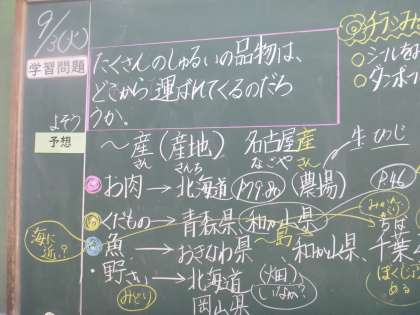 9/3(火)
学習問題
たくさんのしゅるいの品物は、
どこから運ばれてくるのだろ
うか。
チラシみ
シールを
ダンボ
よそう
予想
〜産(産地) 名古屋産
さん さんち なごや さん
牛 ひつじ
お肉→北海道 P79.80 (農場)
P.46
くだもの→青森県、和か山県
みかん
海に近い?
魚→おきなわ県 〜島 和か山県、千葉
ちば
野さい→北海道 (畑)
みどり
いなか?
岡山県
ぼくじょう
ある